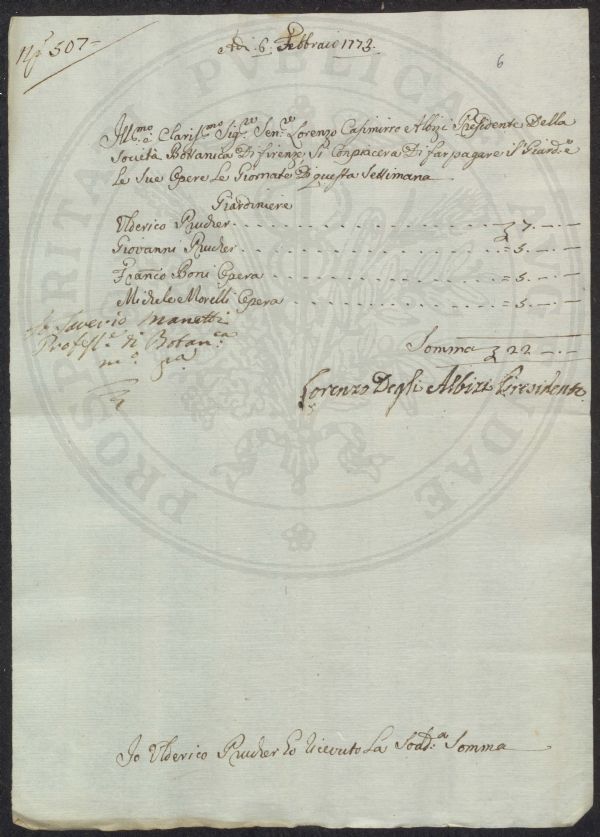 N.º 507=
Adi. 6. Febbraio 1773.
6
Ill.mo e Claris.mo Sig.re Sen.re Lorenzo Casimirro e Albizi Presidente Della
Società Bottanica Di firenze Si Conpiacera Di far pagare il Giard.e
Le Sue Opere Le Giornate Di questa Settimana
Giardiniere
Ulderico Prucher £ 7.-.-
Giovanni Prucher = 5.-.-
Franco Boni Opera = 5.-.-
Michele Morelli Opera = 5.-.-
Saverio Manetti
Profess.e di Botan.ca
m.o p.a
Somma £ 22.-.-
Lorenzo Degli Albizi Presidente
Io Ulderico Prucher ho ricevuto La Sodd.a Somma
PROSPERITATI PUBLICAE AUGENDAE